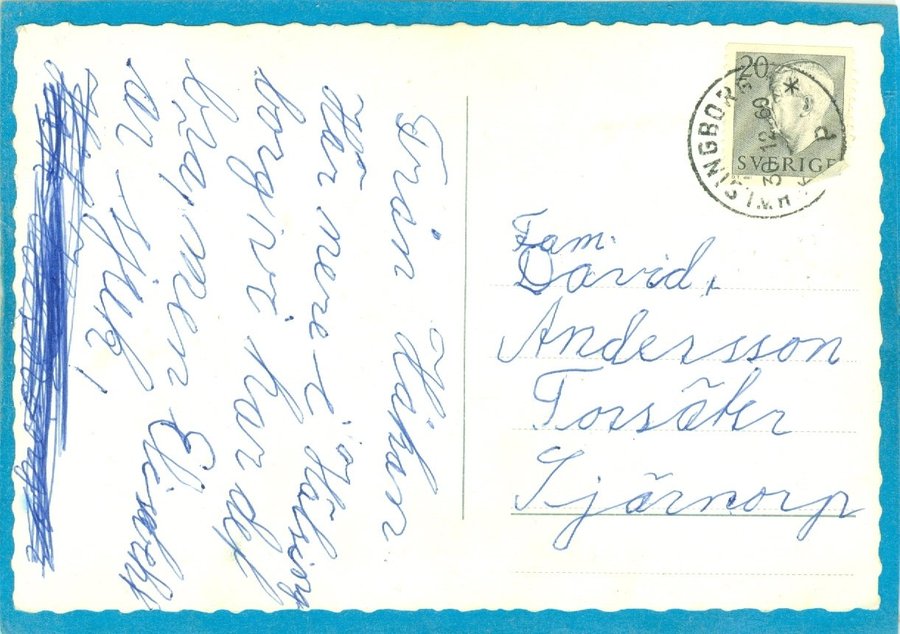 Från Håkan
Här nere i Hälsing
borg vi har det
bra, men Elisabeth
är sjuk!
20
SVERIGE
HÄLSINGBOR
12 60
Fam.
David.
Andersson
Torsäter
Stjärnorp